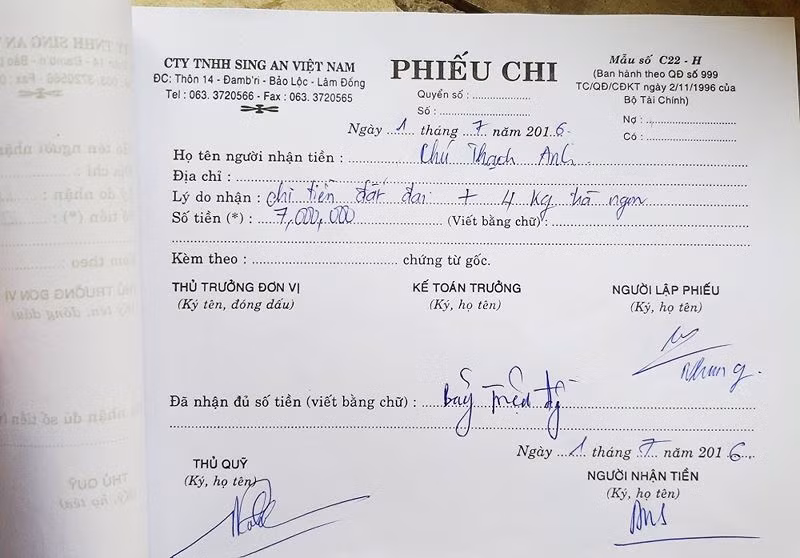 CTY TNHH SING AN VIỆT NAM
ĐC: Thôn 14 - Đamb'ri - Bảo Lộc - Lâm Đồng
Tel : 063. 3720566 - Fax : 063. 3720565
PHIẾU CHI
Quyển số : ....................
Số : ....................
Mẫu số C22 - H
(Ban hành theo QĐ số 999
TC/QĐ/CĐKT ngày 2/11/1996 của
Bộ Tài Chính)
Nợ : ....................
Có : ....................
Ngày 1 tháng 7 năm 2016
Họ tên người nhận tiền : Chú Thạch Anh
Địa chỉ :
Lý do nhận : chi tiền đất đai + 4 kg trà ngon
Số tiền (*) : 7,000,000 (Viết bằng chữ) :
Kèm theo : .................... chứng từ gốc.
THỦ TRƯỞNG ĐƠN VỊ KẾ TOÁN TRƯỞNG NGƯỜI LẬP PHIẾU
(Ký tên, đóng dấu) (Ký, họ tên) (Ký, họ tên)
Nhung
Đã nhận đủ số tiền (viết bằng chữ) : Bảy triệu đồng
Ngày 1 tháng 7 năm 2016
THỦ QUỸ NGƯỜI NHẬN TIỀN
(Ký, họ tên) (Ký, họ tên)